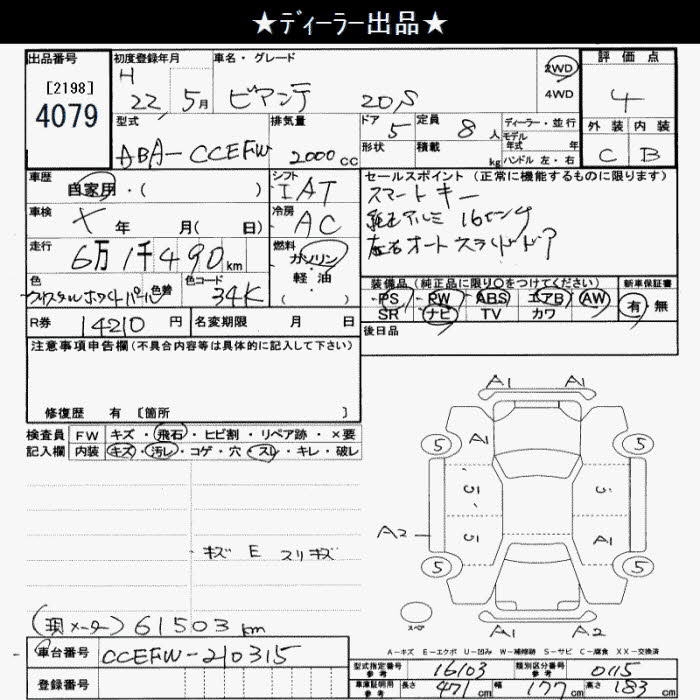 ★ディーラー出品★
出品番号 初度登録年月 車名・グレード 2WD 評価点
[2198] H 22年 5月 ビアンテ 20S 4WD 4
4079
型式 排気量 ドア 5 定員 8人 ディーラー・並行 外装 内装
ABA-CCEFW 2000cc 形状 積載 kg モデル年式 年 C B
ハンドル 左・右
車歴 シフト セールスポイント (正常に機能するものに限ります)
自家用・( ) IAT スマートキー
車検 冷房 純正アルミ 16インチ
× 年 月( 日) AC 左右オートスライドドア
走行 燃料
6万1千490km ガソリン
色 色替 色コード 軽油 装備品 (純正品に限り○をつけてください) 新車保証書
クリスタルホワイトパール 34K ( ) PS PW ABS エアB AW 有・無
SR ナビ TV カワ
R券 14210円 名変期限 月 日 後日品
注意事項申告欄(不具合内容等は具体的に記入して下さい)
修復歴 有 [箇所 ]
検査員 FW キズ・飛石・ヒビ割・リペア跡・×要
記入欄 内装 キズ・汚レ・コゲ・穴・スレ・キレ・破レ
A1 A1
5 A1 5
A2 A1
5 5
キズ E スリキズ
スペア A1 A2
(現メーター) 61503km
A-キズ E-エクボ U-凹み W-補修跡 S-サビ C-腐食 XX-交換済
車台番号 CCEFW-210315
登録番号
型式指定番号 参考 16103 類別区分番号 参考 0115
車庫証明用 参考 長さ 471cm 幅 177cm 高さ 183cm